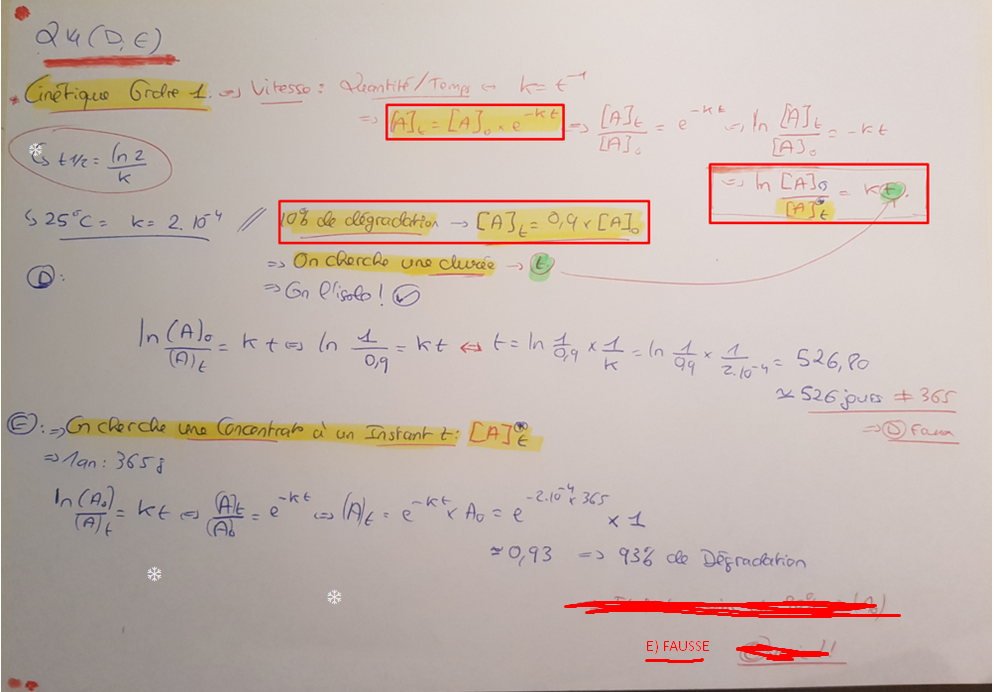 24 (D, E)
Cinétique Ordre 1. => Vitesse : Quantité/Temps <-> k = t⁻¹
=> [A]t = [A]₀ × e^-kt => [A]t/[A]₀ = e^-kt => ln [A]t/[A]₀ = -kt
↳ t 1/2 = ln 2/k
=> ln [A]₀/[A]t = kt.
↳ 25°C = k = 2.10⁻⁴ // 10% de dégradation → [A]t = 0,9 × [A]₀
=> On cherche une durée → t
D :
=> On l'isole !
ln (A)₀/(A)t = kt <=> ln 1/0,9 = kt <-> t = ln 1/0,9 × 1/k = ln 1/0,9 × 1/2.10⁻⁴ = 526,80
≃ 526 jours ≠ 365
=> D Faux
E : => On cherche une Concentrat° à un Instant t : [A]t
=> 1an : 365j
ln (A₀)/(A)t = kt <=> (A)t/(A)₀ = e^-kt <=> (A)t = e^-kt × A₀ = e^-2.10⁻⁴×365 × 1
≈ 0,93 => 93% de Dégradation
E) FAUSSE